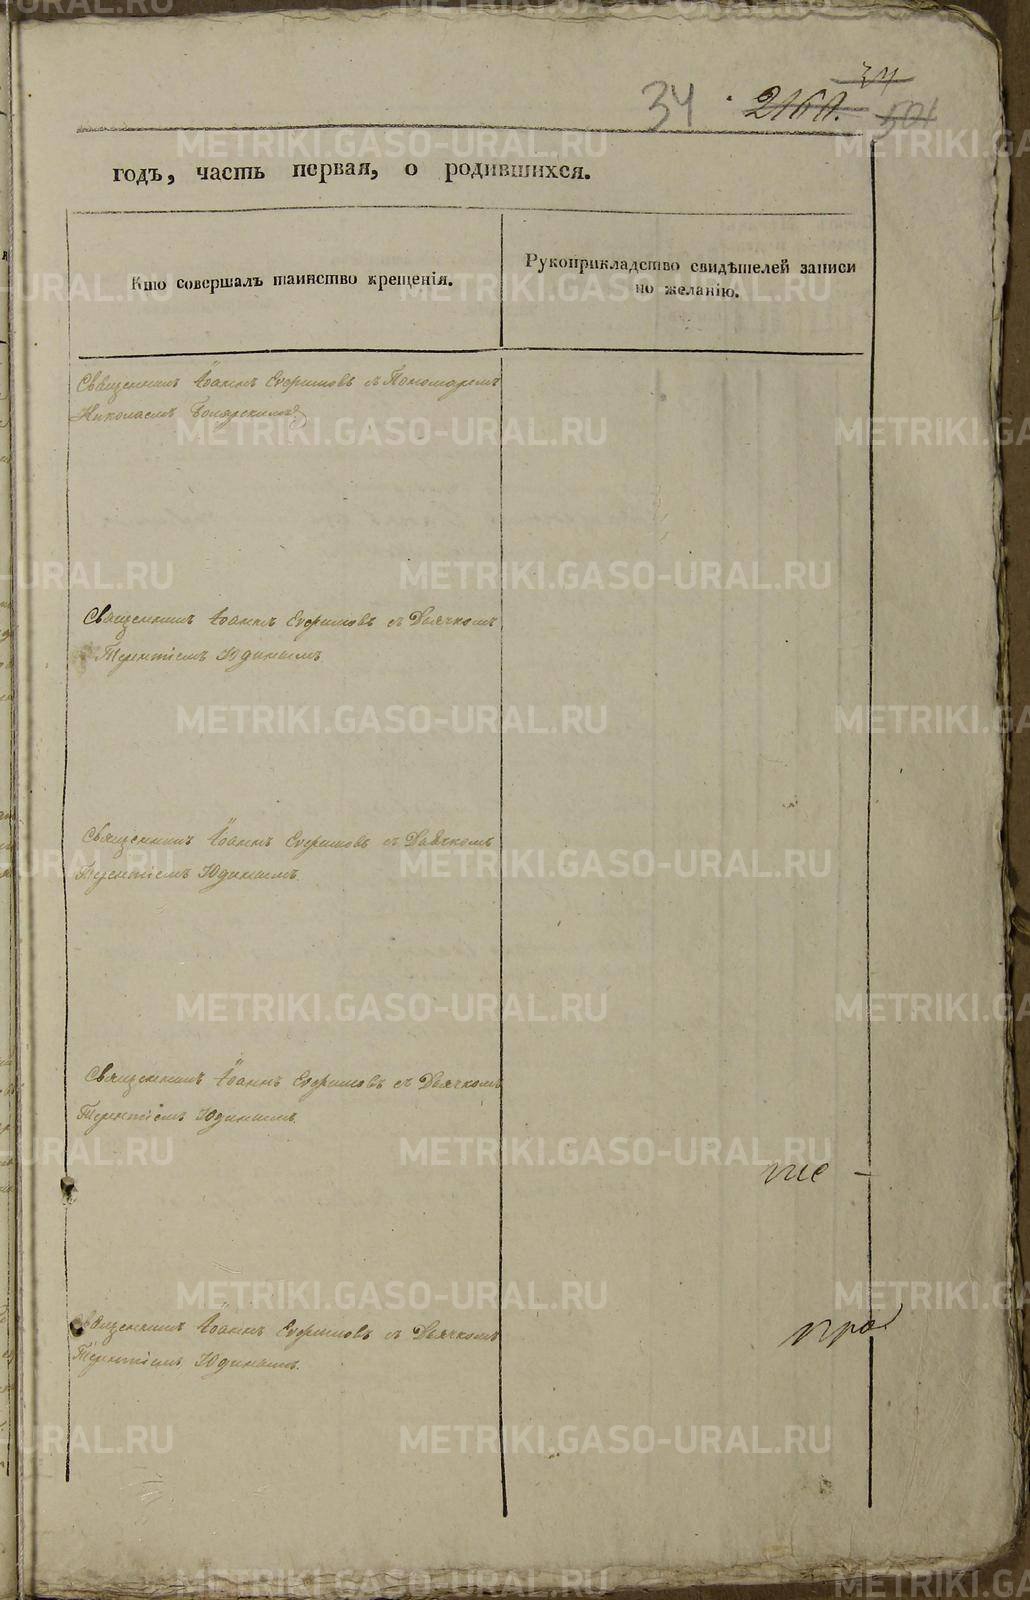 34
34
годъ, часть первая, о родившихся.
Кто совершалъ таинство крещенія.
Рукоприкладство свидѣтелей записи
по желанію.
Священникъ Іоаннъ Ефримовъ съ Пономаремъ
Николаемъ
Священникъ Іоаннъ Ефримовъ съ Дьячкомъ
Терентіемъ Юдинымъ
Священникъ Іоаннъ Ефримовъ съ Дьячкомъ
Терентіемъ Юдинымъ
Священникъ Іоаннъ Ефримовъ съ Дьячкомъ
Терентіемъ Юдинымъ.
Священникъ Іоаннъ Ефримовъ съ Дьячкомъ
Терентіемъ Юдинымъ.
METRIKI.GASO-URAL.RU